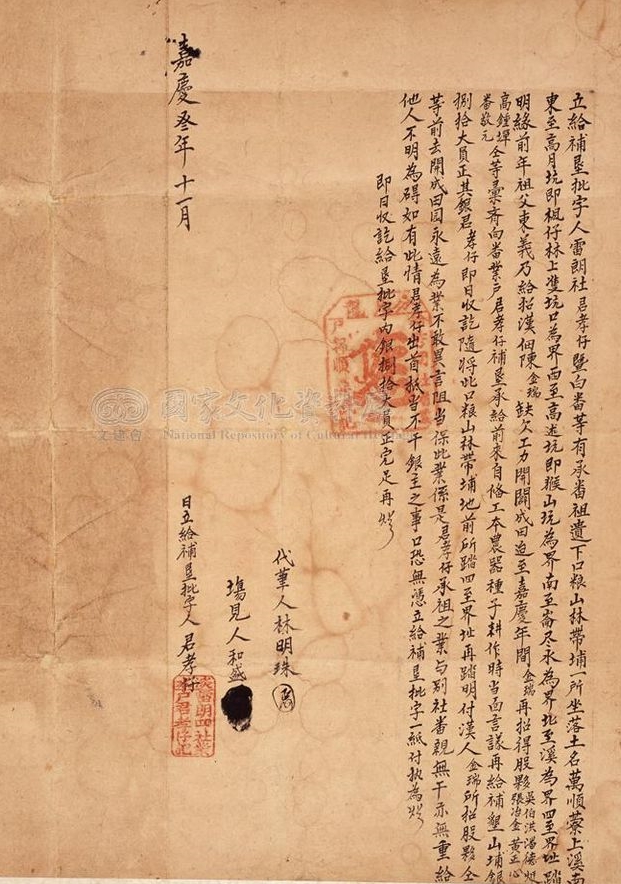 立給補墾批字人雷朗社君孝仔暨白番等有承番祖遺下口粮山林帶埔一所坐落土名萬順藔上溪南
東至高月坑即楓仔林上双坑口為界西至高迯坑即猴山坑為界南至崙尾水為界北至溪為界四至界址踏
明緣前年祖父東義乃給招漢佃陳金瑞缺欠工力開闢成田迨至嘉慶年間金瑞再招得股夥吳伯洪湯德
張治金黃正心
高鍾
番敬元
仝等彙齊向番業戶君孝仔補墾承給前來自俻工本農器種子耕作時当面言議再給補墾山埔銀
捌拾大員正其銀君孝仔即日收訖隨將此口粮山林帶埔地前所踏四至界址再踏明付漢人金瑞所招股夥仝
等前去開成田园永遠為業不敢異言阻当保此業係是君孝仔承祖之業与別社番親無干亦無重給
他人不明為碍如有此情君孝仔出首抵当不干銀主之事口恐無憑立給補墾批字一紙付执為炤
即日收訖給墾批字內銀捌拾大員正完足再炤
代筆人林明珠
塲見人和盛
日立給補墾批字人君孝仔
嘉慶叁年十一月
國家文化資料庫
文建會 National Repository of Cultural Heritage